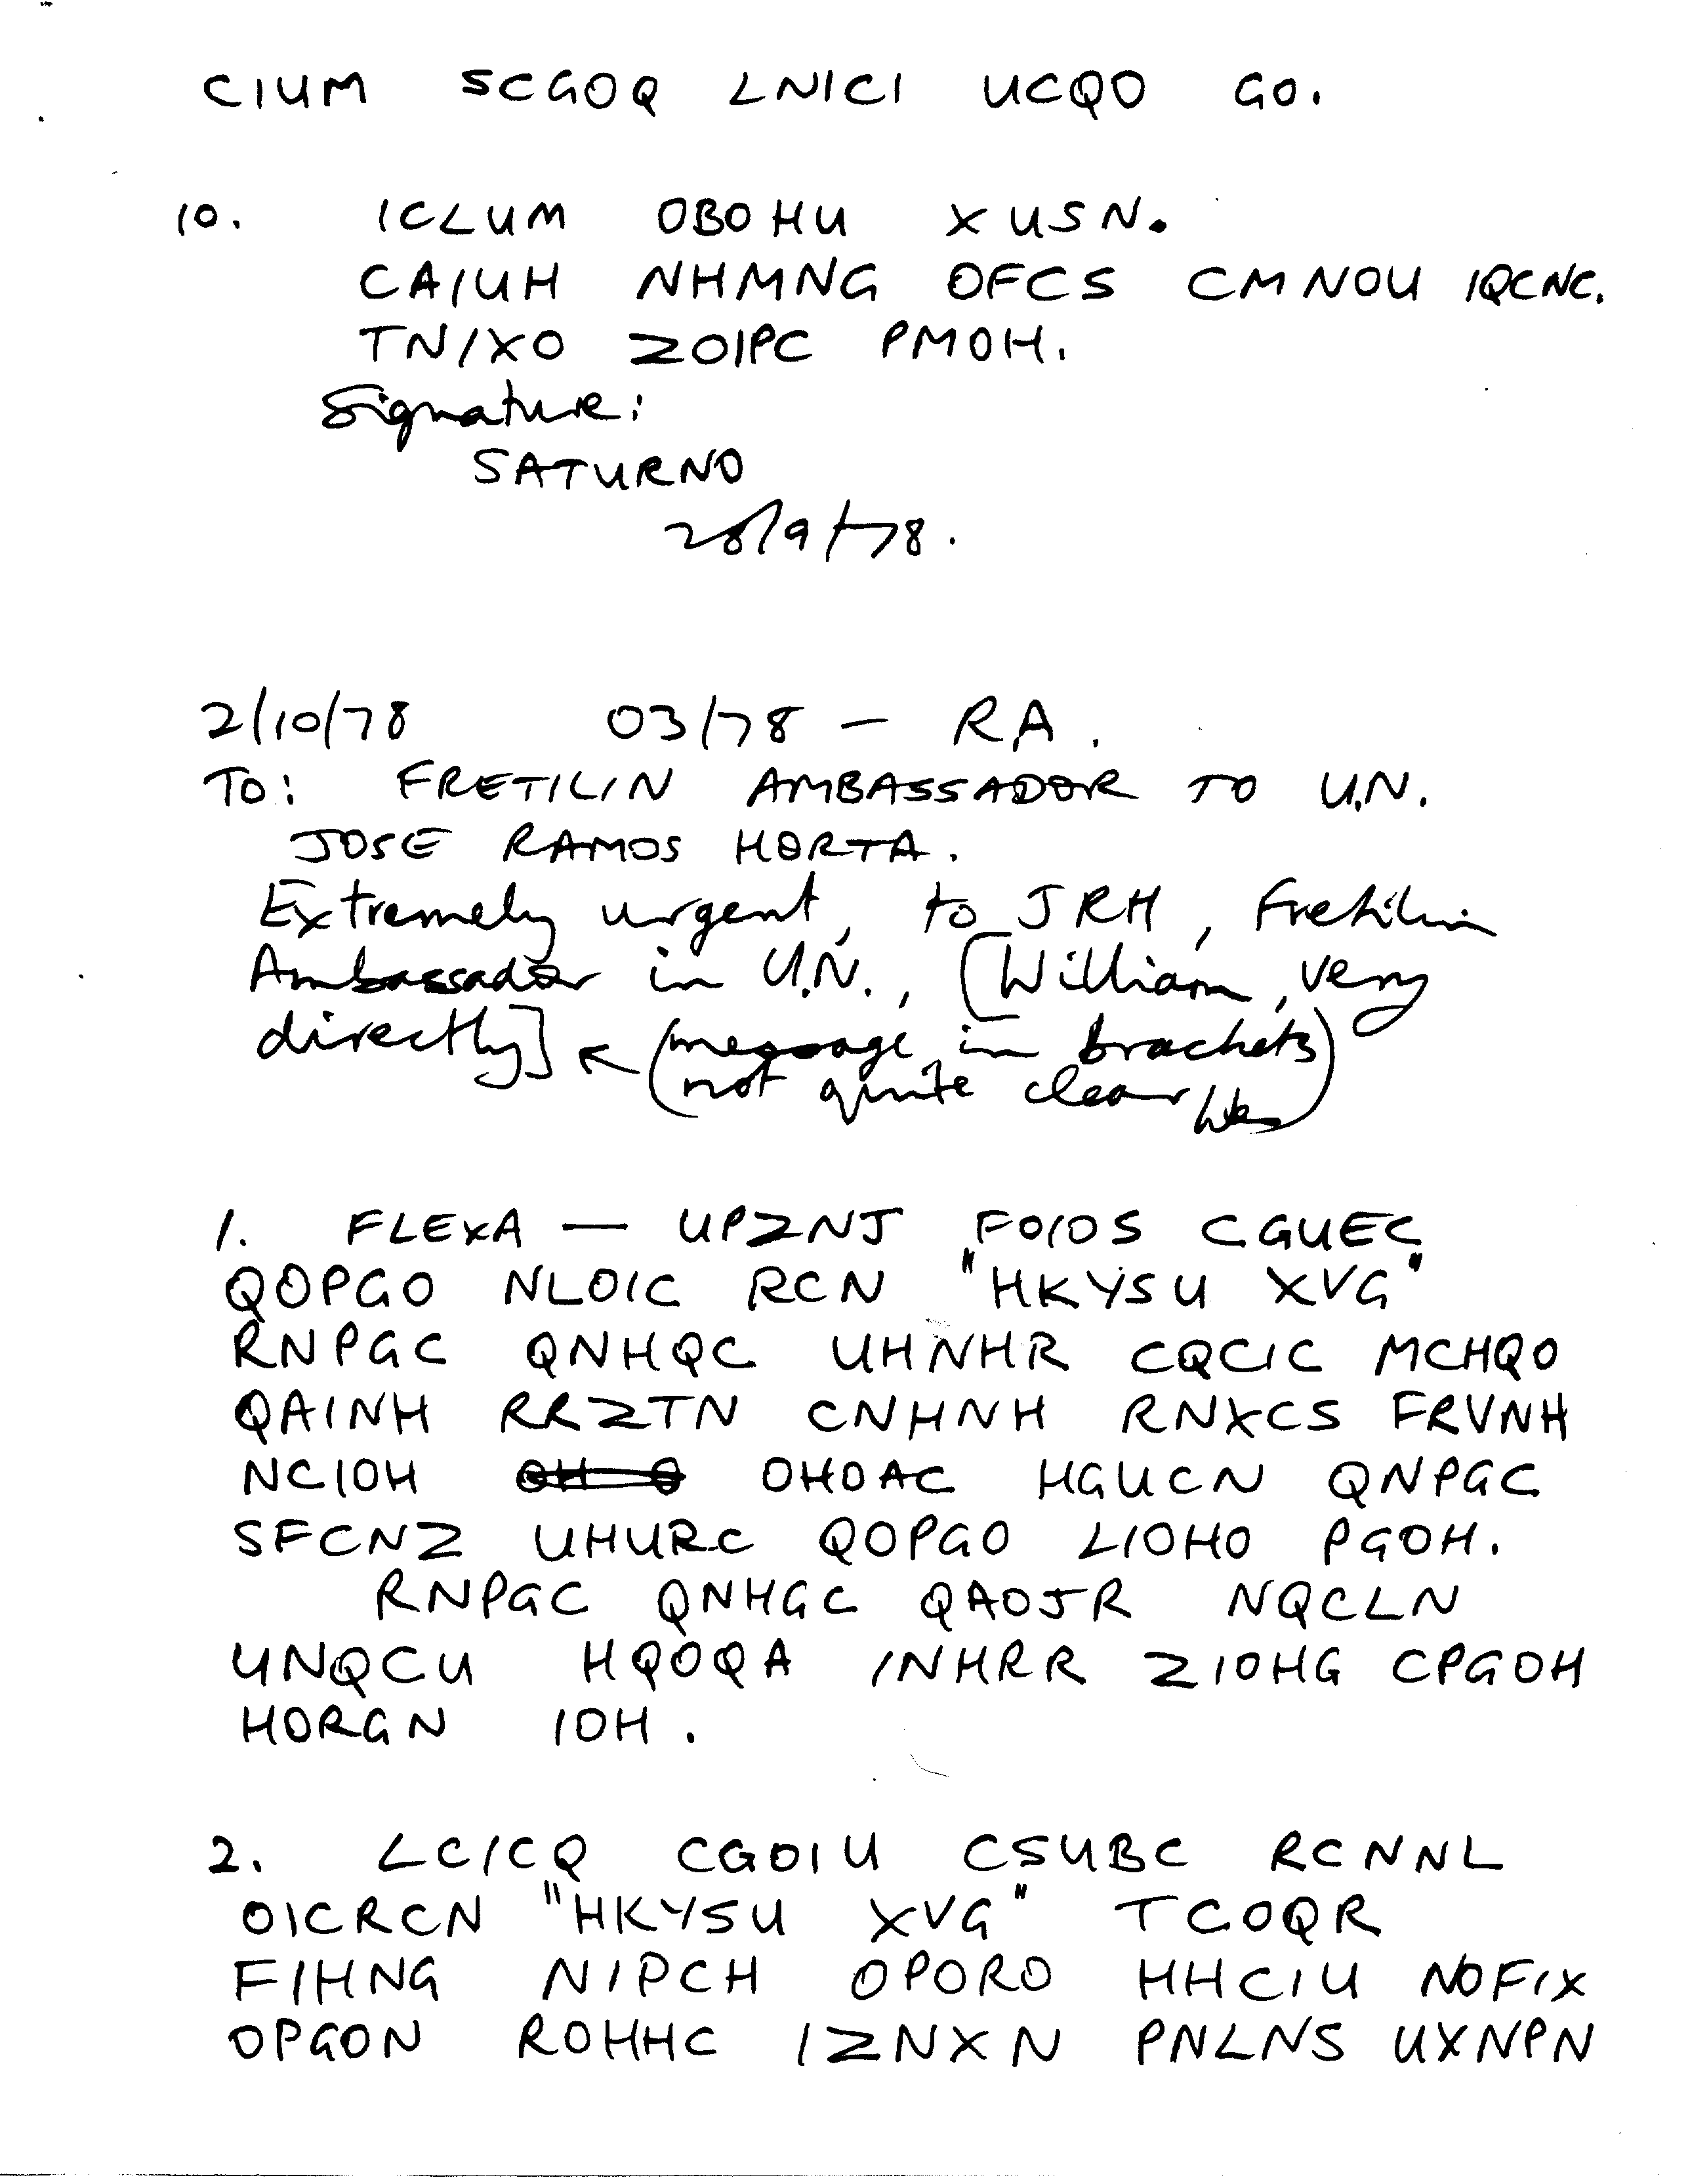 CIUM SCGOQ LNICI UCQO GO.
10. ICLUM OBOHU XUSN.
CAIUH NHMNG OFCS CMNOU IQCNC.
TNIXO ZOIPC PMOH.
Signature:
SATURNO
28/9/78.
2/10/78 03/78 — RA.
TO: FRETILIN AMBASSADOR TO U.N.
JOSE RAMOS HORTA.
Extremely urgent, to JRH, Fretilin
Ambassador in U.N., [William, very
directly] ← (message in brackets)
not quite clear
1. FLEXA — UPZNJ FOIOS CGUEC
QOPGO NLOIC RCN "HKYSU XVG"
RNPGC QNHQC UHNHR CQCIC MCHQO
QAINH RRZTN CNHNH RNXCS FRVNH
NCIOH OHOAC HGUCN QNPGC
SFCNZ UHURC QOPGO LIOHO PGOH.
RNPGC QNHGC QAOJR NQCLN
UNQCU HQOQA INHRR ZIOHG CPGOH
HORGN IOH.
2. LCICQ CGOIU CSUBC RCNNL
OICRCN "HKYSU XVG" TCOQR
FIHNG NIPCH OPORO HHCIU NOFIX
OPGON ROHHC IZNXN PNLNS UXNPN